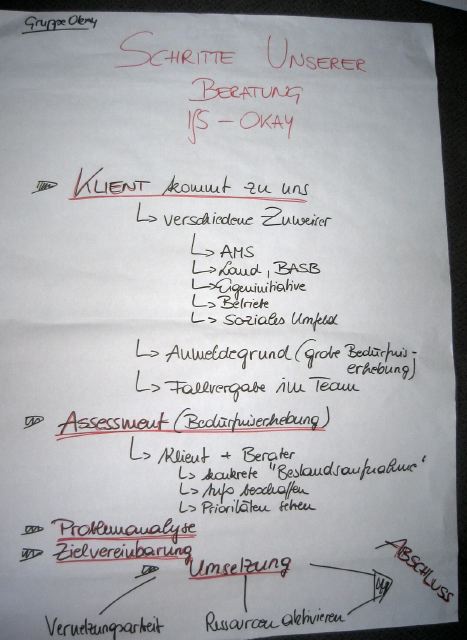 Gruppe Okay
SCHRITTE UNSERER
BERATUNG
IfS - OKAY
KLIENT kommt zu uns
verschiedene Zuweiser
AMS
Land, BASB
Eigeninitiative
Betriebe
soziales Umfeld
Anmeldegrund (grobe Bedürfnis-
erhebung)
Fallvergabe im Team
Assessment (Bedürfniserhebung)
Klient + Berater
konkrete "Bestandsaufnahme"
Info beschaffen
Prioritäten sehen
Problemanalyse
Zielvereinbarung
Umsetzung
ABSCHLUSS
Vernetzungsarbeit
Ressourcen aktivieren